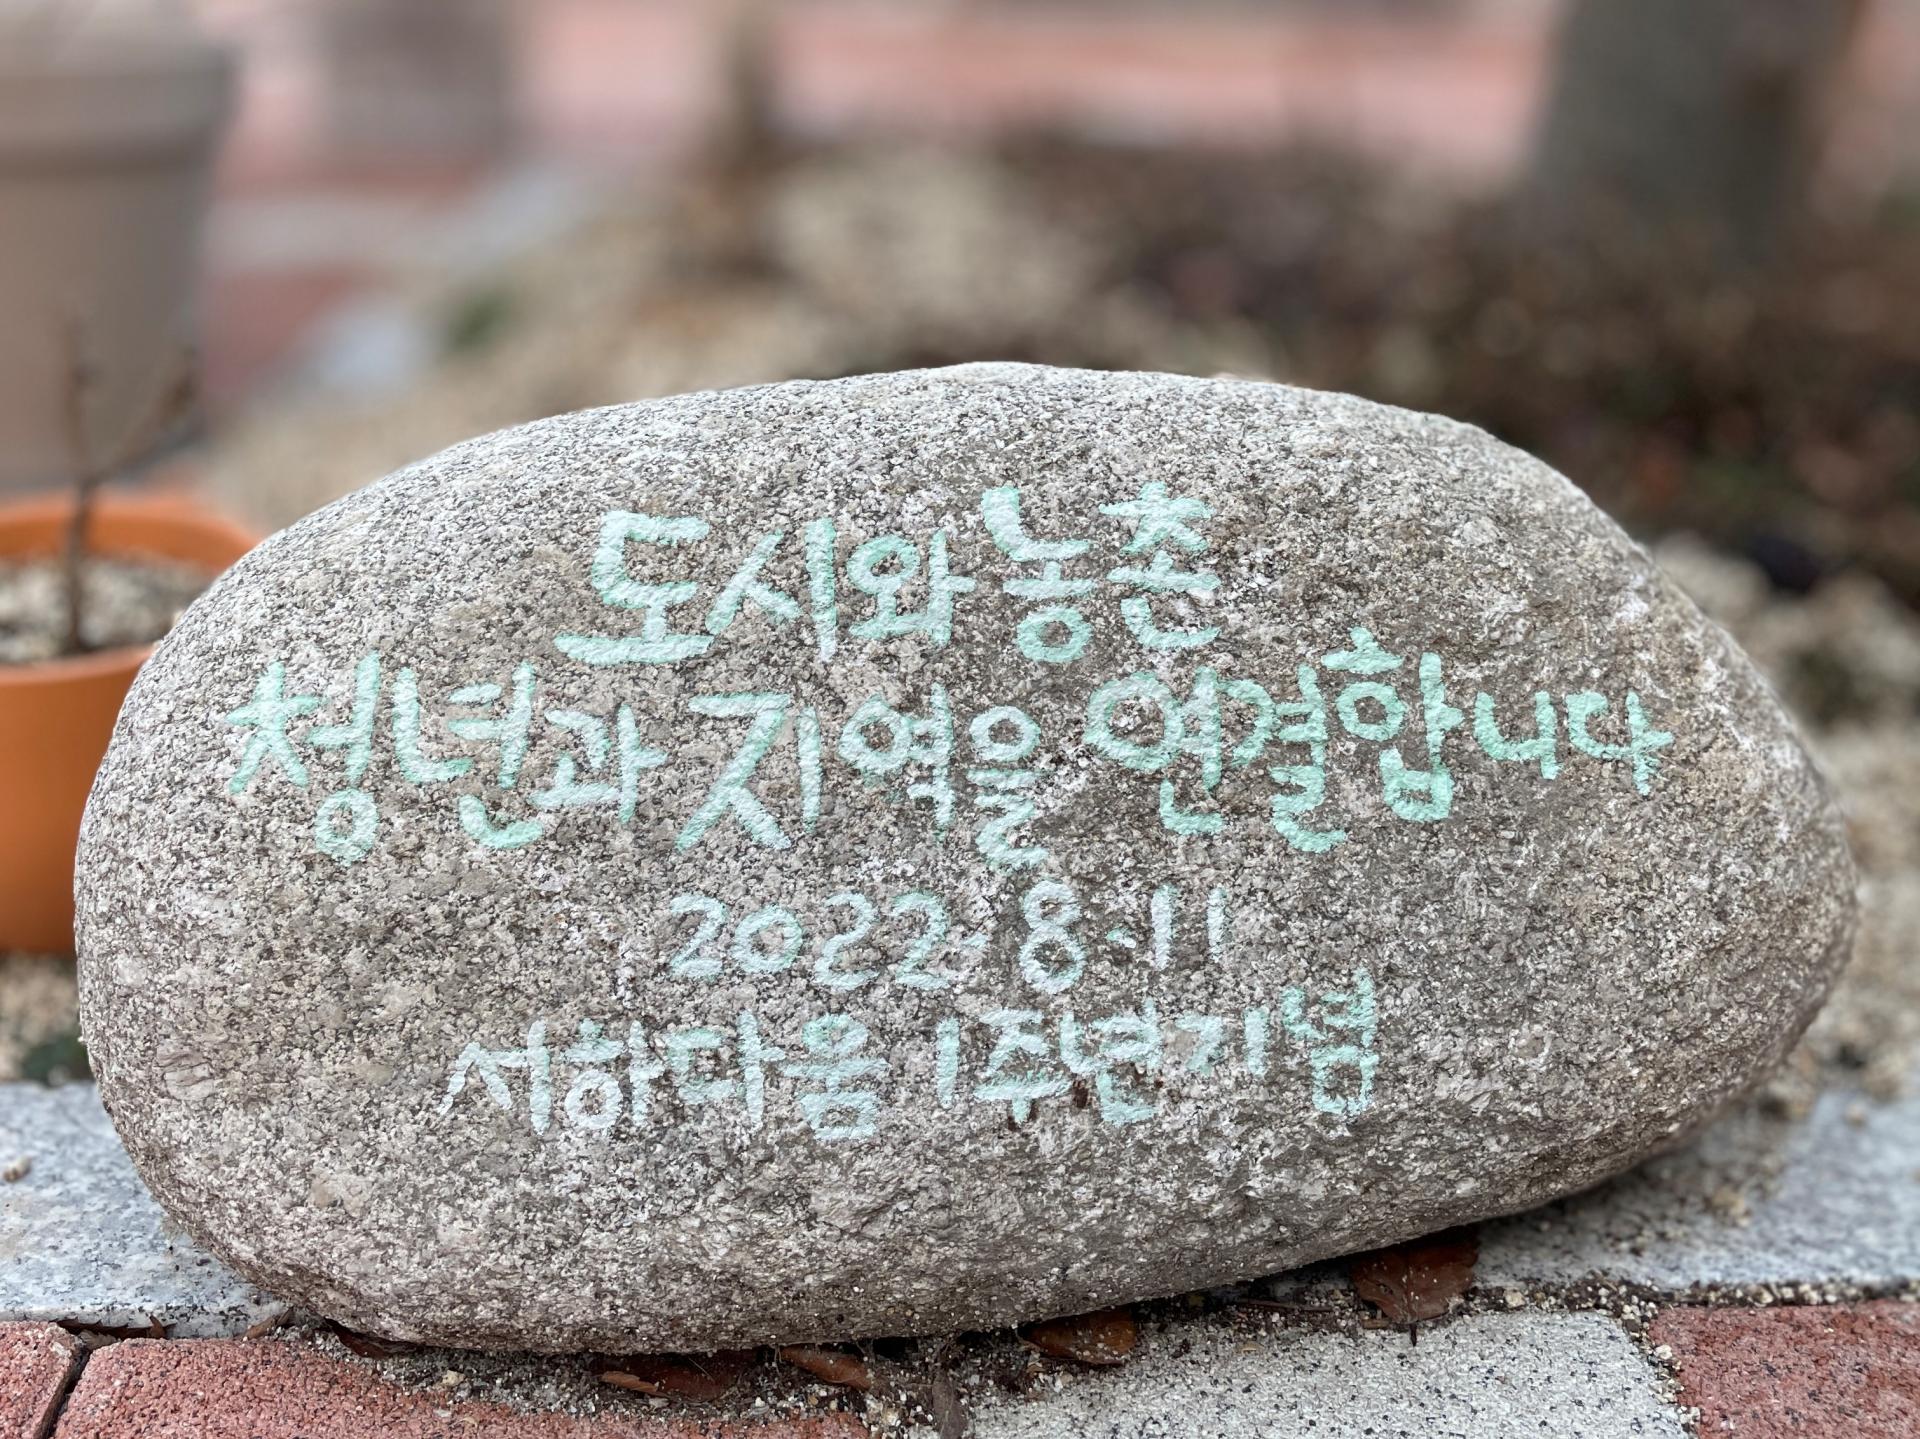 도시와 농촌
청년과 지역을 연결합니다
2022·8·11
서하다움 1주년기념